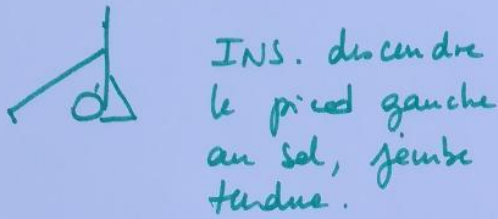 INS. descendre
le pied gauche
au sol, jambe
tendue.